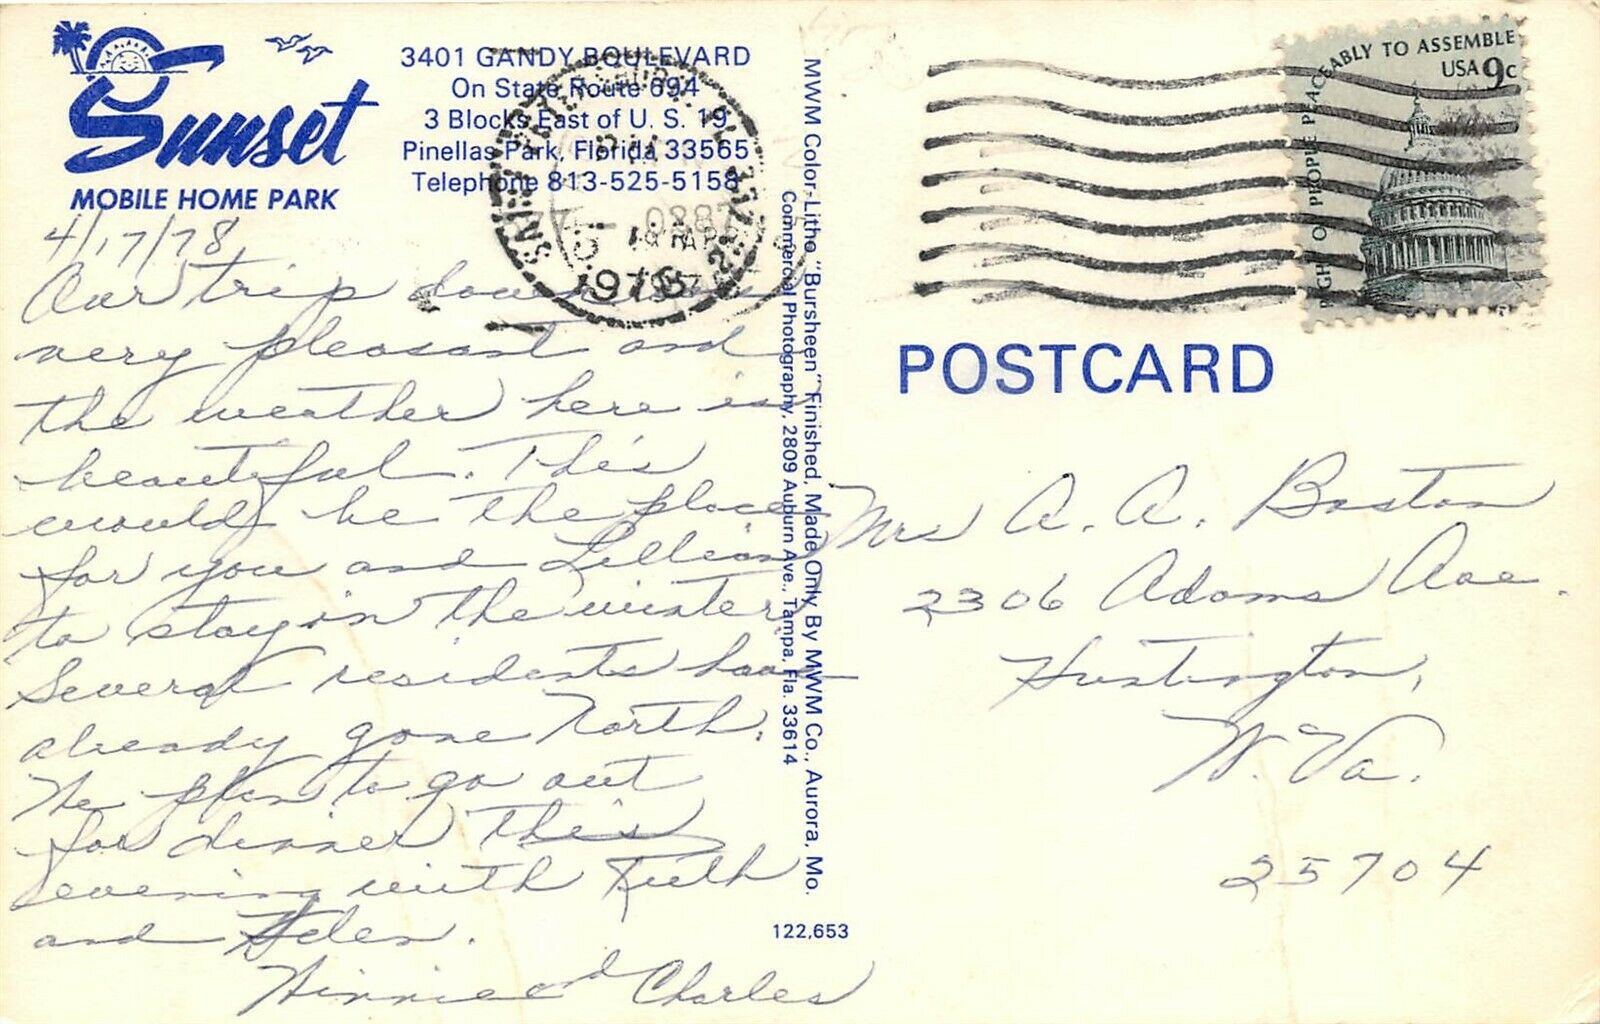 Sunset
MOBILE HOME PARK
3401 GANDY BOULEVARD
On State Route 694
3 Blocks East of U. S. 19
Pinellas Park, Florida 33565
Telephone 813-525-5158
4/17/78
Our trip down was
very pleasant and
the weather here is
beautiful. This
would be the place
for you and Lillian
to stay in the winter
Several residents have
already gone North.
We plan to go out
for dinner this
evening with Ruth
and Helen.
Winnie and Charles
MWM Color-Litho "Bursheen" Finished, Made Only By MWM Co., Aurora, Mo.
Commercial Photography, 2809 Auburn Ave., Tampa, Fla. 33614
122,653
RIGHT OF PEOPLE PEACEABLY TO ASSEMBLE
USA 9c
SAINT PETERSBURG, FL 337
PM
19 APR
1978
POSTCARD
Mrs A. A. Boston
2306 Adams Ave.
Huntington,
W. Va.
25704